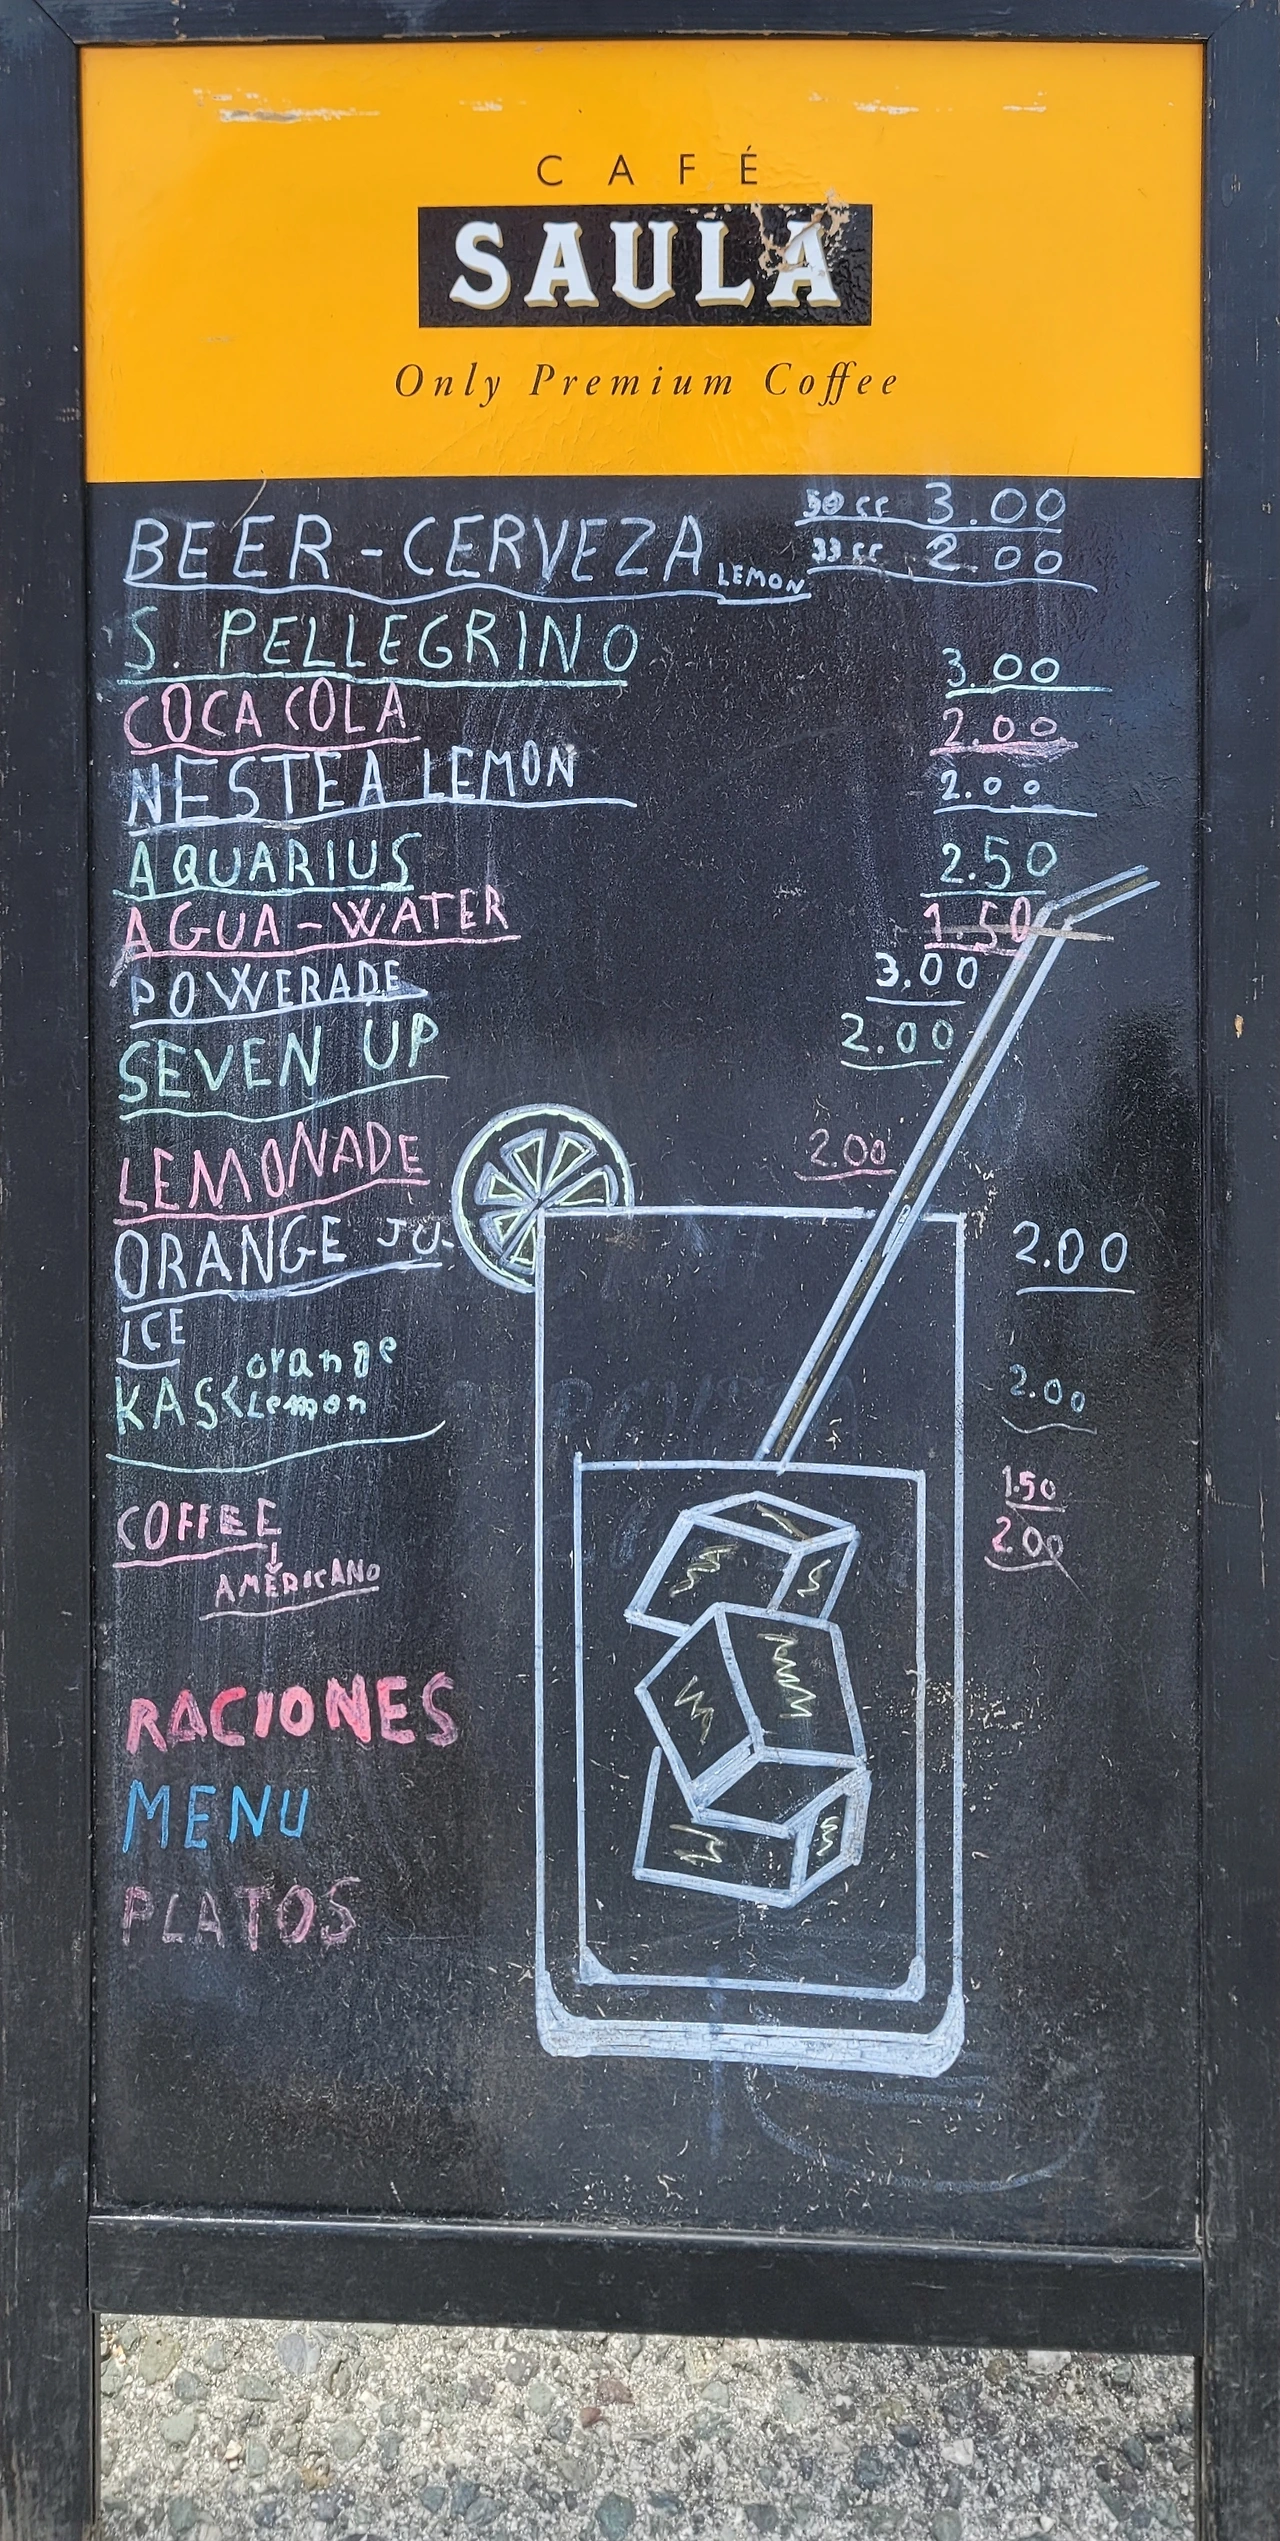 CAFÉ
SAULA
Only Premium Coffee
50 cc 3.00
BEER - CERVEZA LEMON 33 cc 2.00
S. PELLEGRINO 3.00
COCA COLA 2.00
NESTEA LEMON 2.00
AQUARIUS 2.50
AGUA - WATER 1.50
POWERADE 3.00
SEVEN UP 2.00
LEMONADE 2.00
ORANGE JU. 2.00
ICE
orange
KAS < Lemon 2.00
COFFEE 1.50
AMERICANO 2.00
RACIONES
MENU
PLATOS